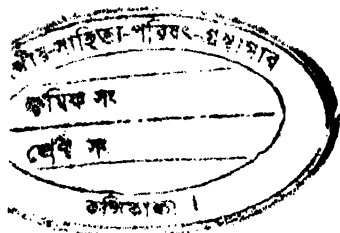 সাহিত্য-পরিষৎ-গ্রন্থাগার
ক্রমিক সং
শ্রেণী সং
কলিকাতা ।